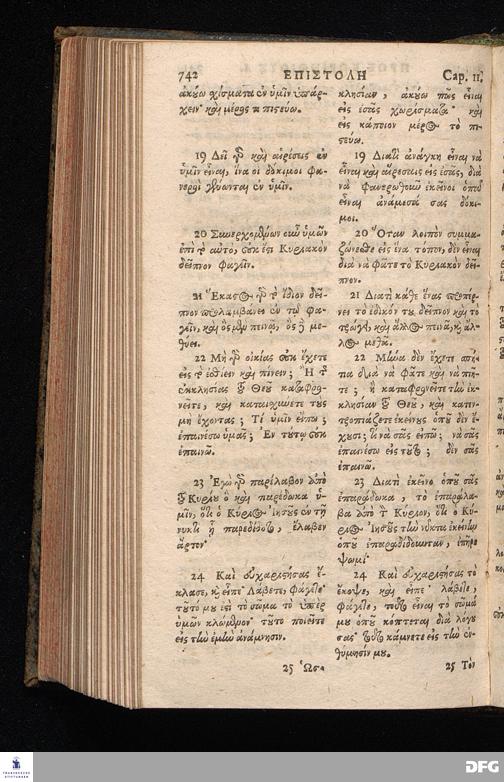 742 ΕΠΙΣΤΟΛΗ Cap. 11.
ἀκούω χίσματα ἐν ὑμῖν ὑπάρ-
χειν· καὶ μέρος τι πιστεύω.
19 Δεῖ γὸ καὶ αἱρέσεις ἐν
ὑμῖν εἶναι, ἵνα οἱ δόκιμοι φα-
νεροὶ γένωνται ἐν ὑμῖν.
20 Συνερχομένων οὖν ὑμῶν
ἐπὶ τὸ αὐτὸ, οὐκ ἔστι Κυριακὸν
δεῖπνον φαγεῖν.
21 Ἕκαστος γὸ τὸ ἴδιον δεῖ-
πνον προλαμβάνει ἐν τῷ φα-
γεῖν, καὶ ὃς μὲν πεινᾷ, ὃς ἢ με-
θύει.
22 Μὴ γὸ οἰκίας οὐκ ἔχετε
εἰς τὸ ἐσθίειν καὶ πίνειν; Ἢ τ
ἐκκλησίας τοῦ Θεοῦ καταφρο-
νεῖτε, καὶ καταισχύνετε τοὺς
μὴ ἔχοντας; Τί ὑμῖν εἴπω;
ἐπαινέσω ὑμᾶς; Ἐν τούτῳ οὐκ
ἐπαινῶ.
23 Ἐγὼ γὸ παρέλαβον ἀπὸ
τοῦ Κυρίου ὃ καὶ παρέδωκα ὑ-
μῖν, ὅτι ὁ Κύριος Ἰησοῦς ἐν τῇ
νυκτὶ ᾗ παρεδίδοτο, ἔλαβεν
ἄρτον·
24 Καὶ εὐχαριστήσας ἔ-
κλασε, καὶ εἶπε· Λάβετε, φάγετε·
τοῦτό μου ἐστὶ τὸ σῶμα τὸ ὑπὲρ
ὑμῶν κλώμενον· τοῦτο ποιεῖτε
εἰς τὴν ἐμὴν ἀνάμνησιν.
25 Ὡσ-
κλησίαν, ἀκούω πῶς εἶναι
εἰς ἐσᾶς χωρίσματα· καὶ
εἰς κάποιον μέρος τὸ πι-
στεύω.
19 Διατὶ ἀνάγκη εἶναι νὰ
εἶναι καὶ αἵρεσεις εἰς ἐσᾶς, διὰ
νὰ φανερωθοῦν ἐκεῖνοι ὁποῦ
εἶναι ἀνάμεσά σας δόκι-
μοι.
20 Ὅταν λοιπὸν συμμα-
ζώνεσθε εἰς ἕνα τόπον, δὲν εἶναι
διὰ νὰ φᾶτε τὸ Κυριακὸν δεῖ-
πνον.
21 Διατὶ κάθε ἕνας προπέρ-
νει τὸ ἐδικόν του δεῖπνον καὶ τὸ
τρώγει, καὶ ἄλλος πεινᾷ, κ ἄλ-
λος μεθᾷ.
22 Μήνα δὲν ἔχετε σπή-
τια διὰ νὰ φᾶτε καὶ νὰ πῆ-
τε; ἢ καταφρονεῖτε τὴν ἐκ-
κλησίαν τοῦ Θεοῦ, καὶ κατεν-
τροπιάζετε ἐκείνους ὁποῦ δὲν ἔ-
χουσι; τί νὰ σᾶς εἰπῶ; νὰ σᾶς
ἐπαινέσω εἰς τοῦτο; δὲν σᾶς
ἐπαινῶ.
23 Διατὶ ἐκεῖνο ὁποῦ σᾶς
ἐπαράδωκα, τὸ ἐπαράλα-
βα ἀπὸ τὸ Κύριον, ὅτι ὁ Κύ-
ριος Ἰησοῦς τὴν νύκτα ἐκείνην
ὁποῦ ἐπαραδίδονταν, ἐπῆρε
ψωμί·
24 Καὶ εὐχαριστήσας τὸ
ἔκοψε, καὶ εἶπε· λάβετε,
φάγετε, τοῦτο εἶναι τὸ σῶμά
μου ὁποῦ κόπτεται διὰ λόγου
σας· τοῦτο κάμνετε εἰς τὴν ἐν-
θύμησίν μου.
25 Τὸν
DFG